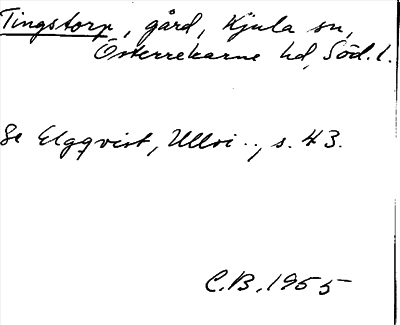 Tingstorp, gård, Kjula sn,
Österrekarne hd, Söd. l.
Se Elgqvist, Ullvi.., s. 43.
C.B. 1955